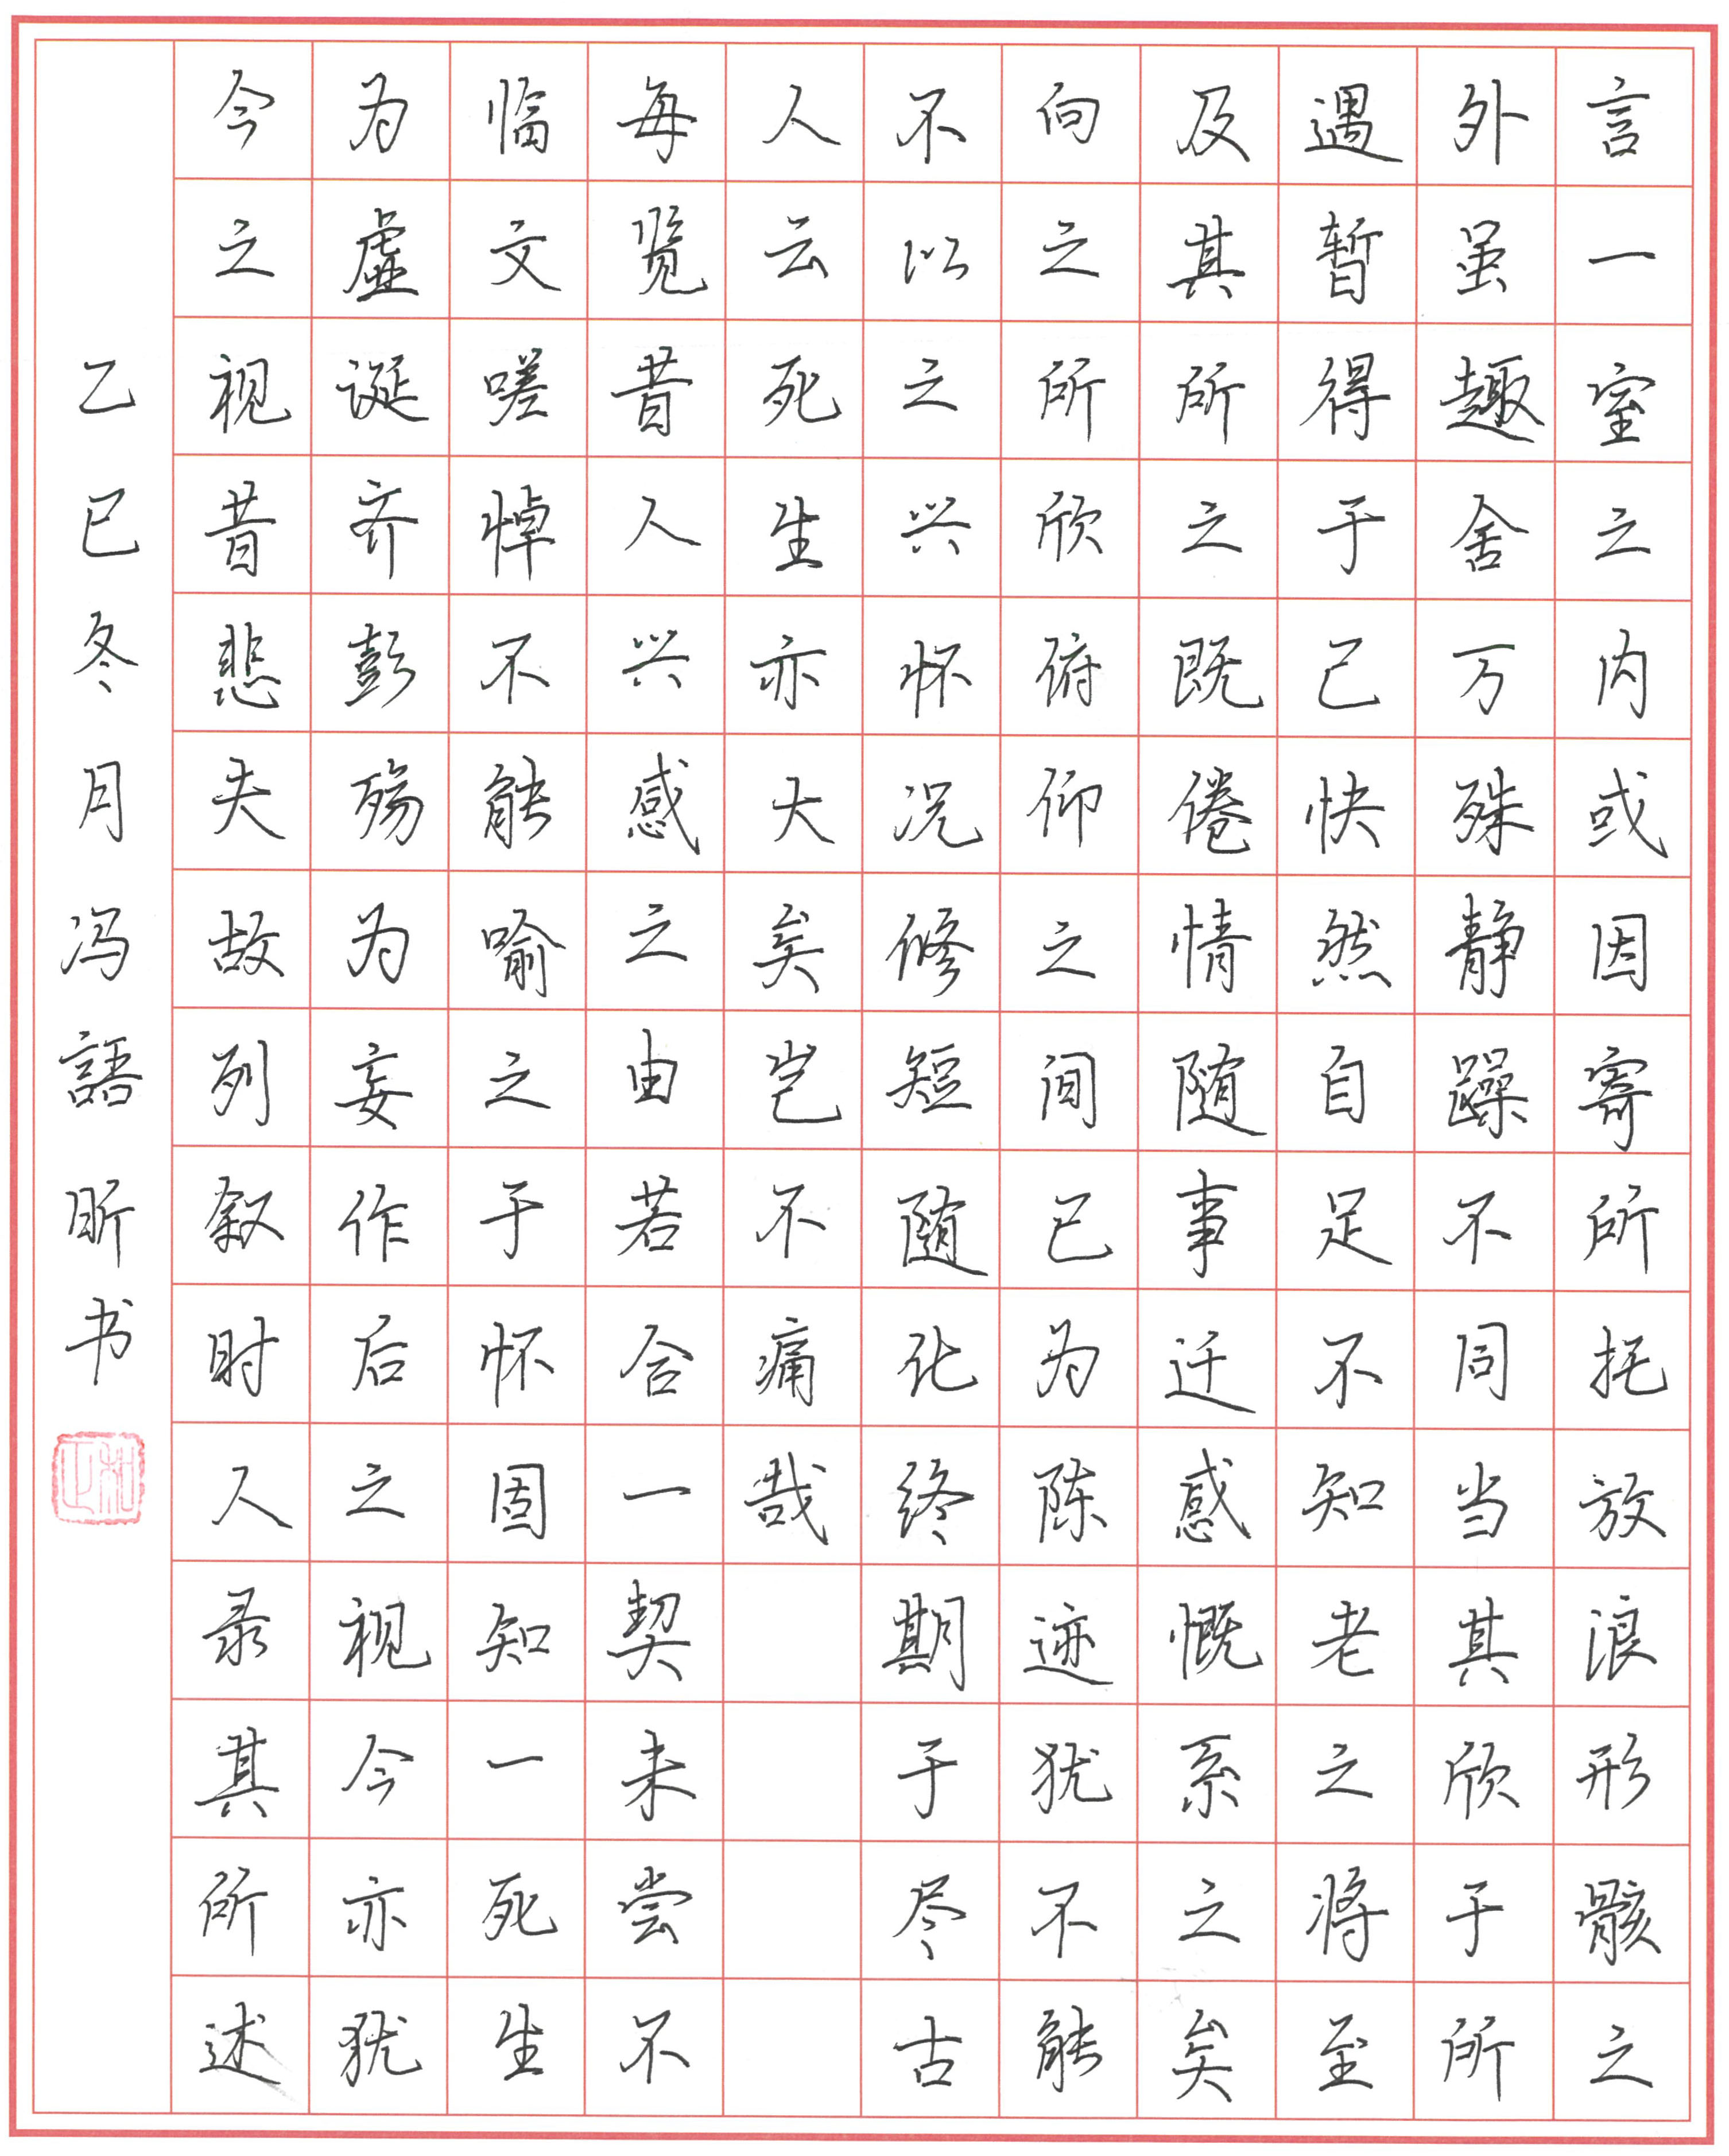 言一室之内或因寄所托放浪形骸之
外虽趣舍万殊静躁不同当其欣于所
遇暂得于己快然自足不知老之将至
及其所之既倦情随事迁感慨系之矣
向之所欣俯仰之间已为陈迹犹不能
不以之兴怀况修短随化终期于尽古
人云死生亦大矣岂不痛哉
每览昔人兴感之由若合一契未尝不
临文嗟悼不能喻之于怀固知一死生
为虚诞齐彭殇为妄作后之视今亦犹
今之视昔悲夫故列叙时人录其所述
乙巳冬月冯語昕书